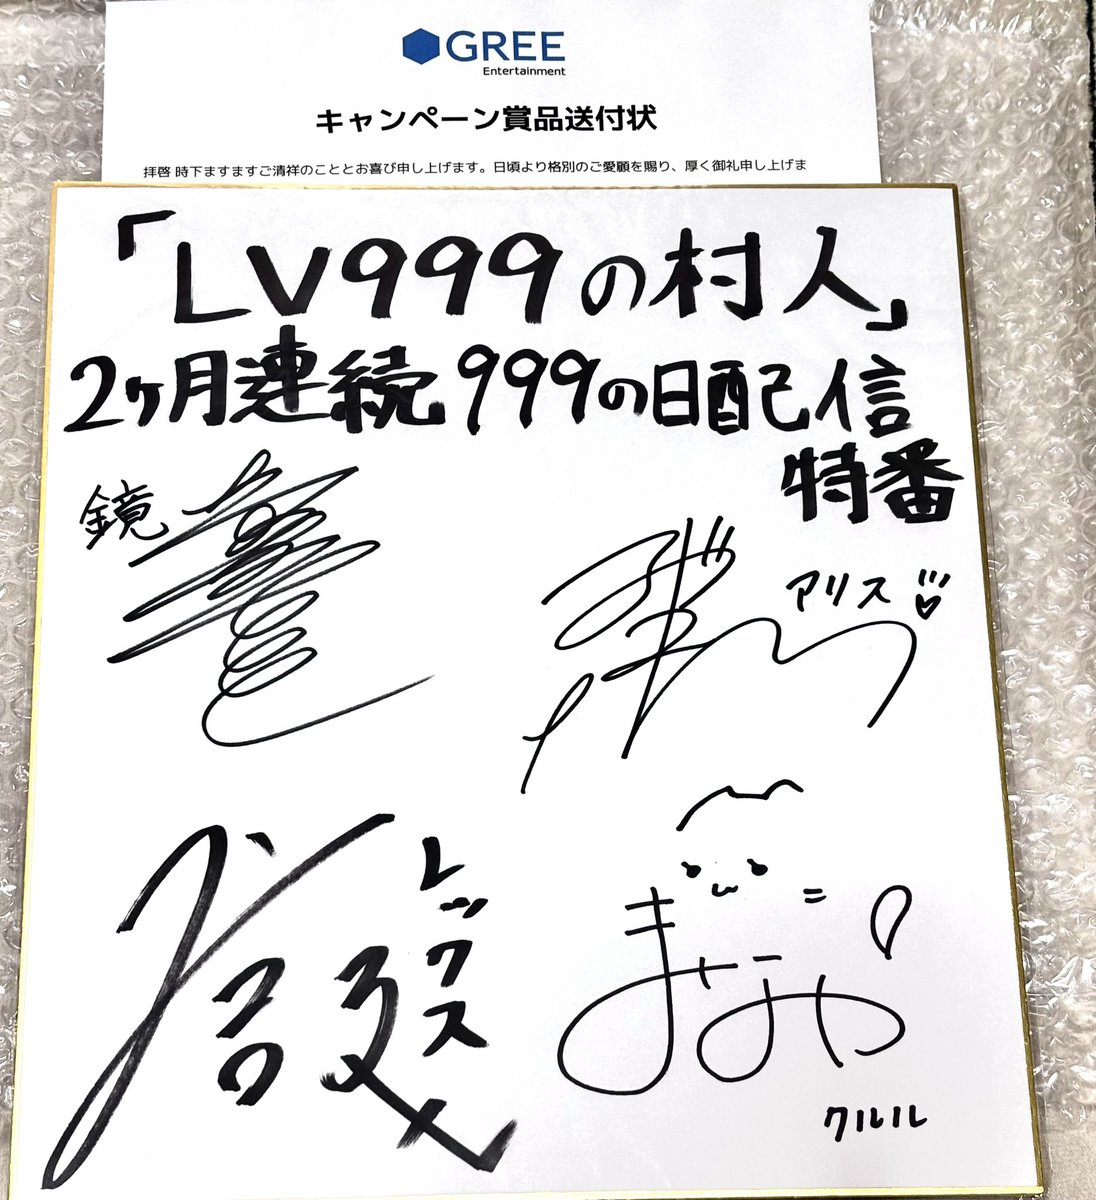 GREE
Entertainment
キャンペーン賞品送付状
拝啓 時下ますますご清祥のこととお喜び申し上げます。日頃より格別のご愛顧を賜り、厚く御礼申し上げま
「LV999の村人」
2ヶ月連続999の日配信
特番
鏡
アリス
レックス
クルル